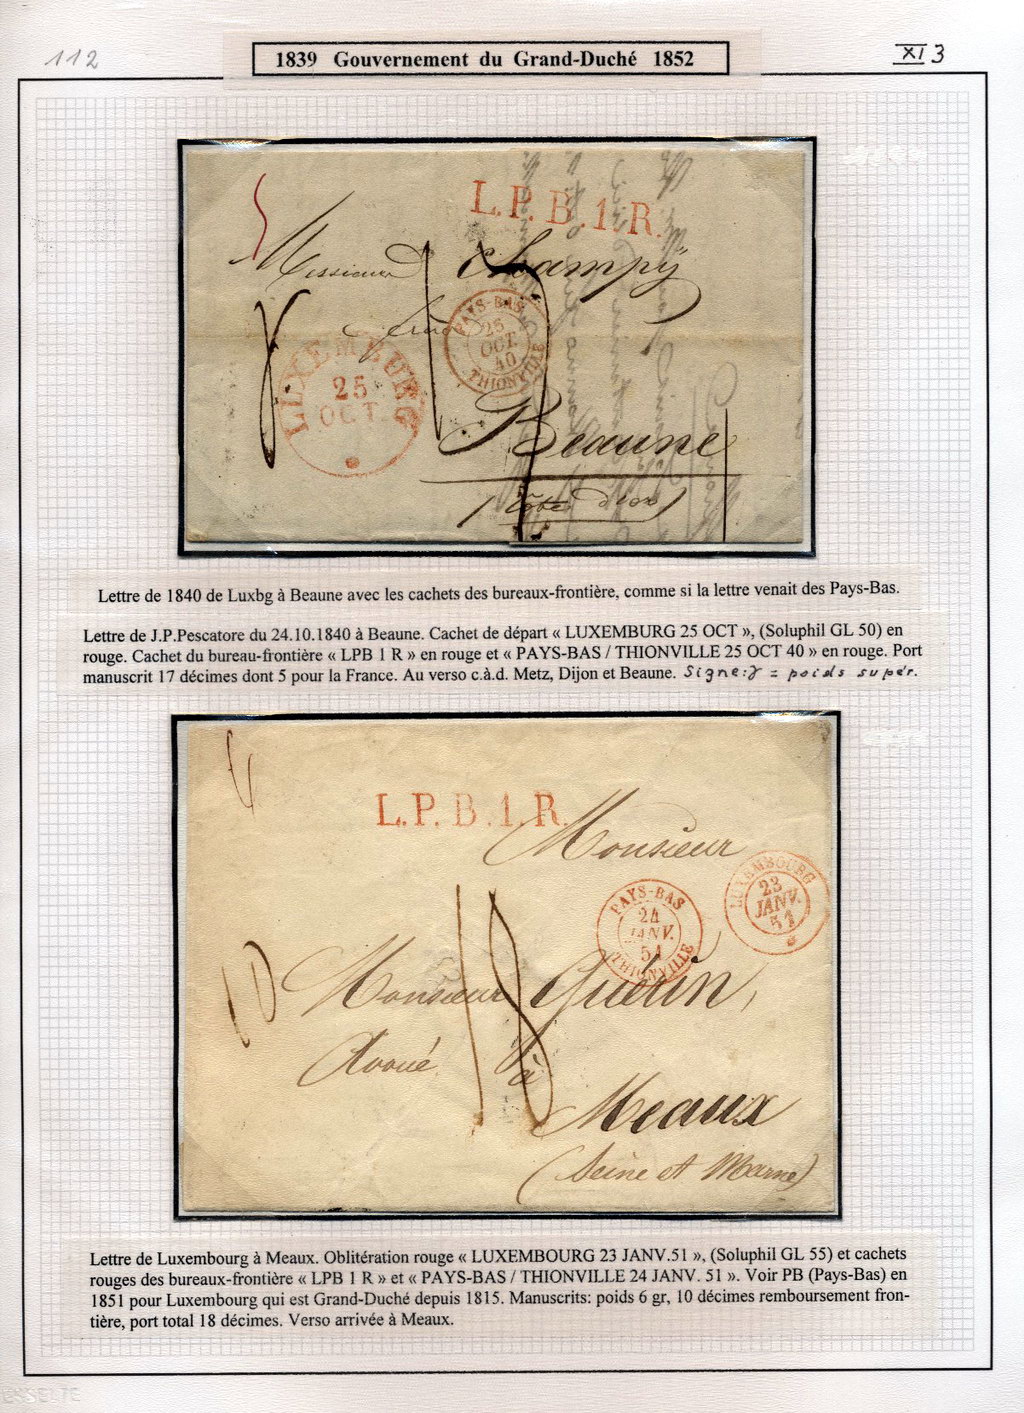 112
1839 Gouvernement du Grand-Duché 1852
XI 3
L.P.B.1.R.
Messieurs Champy
frères
PAYS-BAS
25
OCT.
40
THIONVILLE
LUXEMBURG
25
OCT.
17
Beaune
(Côte d'or)
Lettre de 1840 de Luxbg à Beaune avec les cachets des bureaux-frontière, comme si la lettre venait des Pays-Bas.
Lettre de J.P.Pescatore du 24.10.1840 à Beaune. Cachet de départ « LUXEMBURG 25 OCT », (Soluphil GL 50) en
rouge. Cachet du bureau-frontière « LPB 1 R » en rouge et « PAYS-BAS / THIONVILLE 25 OCT 40 » en rouge. Port
manuscrit 17 décimes dont 5 pour la France. Au verso c.à.d. Metz, Dijon et Beaune. Signe: γ = poids supér.
L.P.B.1.R.
Monsieur
LUXEMBOURG
23
JANV.
51
PAYS-BAS
24
JANV.
51
THIONVILLE
10
18
Monsieur Guérin,
Avoué à
Meaux
(Seine et Marne)
Lettre de Luxembourg à Meaux. Oblitération rouge « LUXEMBOURG 23 JANV.51 », (Soluphil GL 55) et cachets
rouges des bureaux-frontière « LPB 1 R » et « PAYS-BAS / THIONVILLE 24 JANV. 51 ». Voir PB (Pays-Bas) en
1851 pour Luxembourg qui est Grand-Duché depuis 1815. Manuscrits: poids 6 gr, 10 décimes remboursement fron-
tière, port total 18 décimes. Verso arrivée à Meaux.